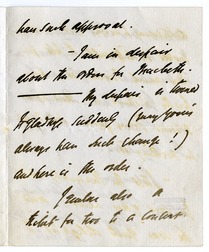 han such approval.
- I am in despair
about the orders for Macbeth.
My despair is turned
to gladness suddenly (very joyous
always han such change!)
and here is the order.
I enclose also a
ticket for two to a concert